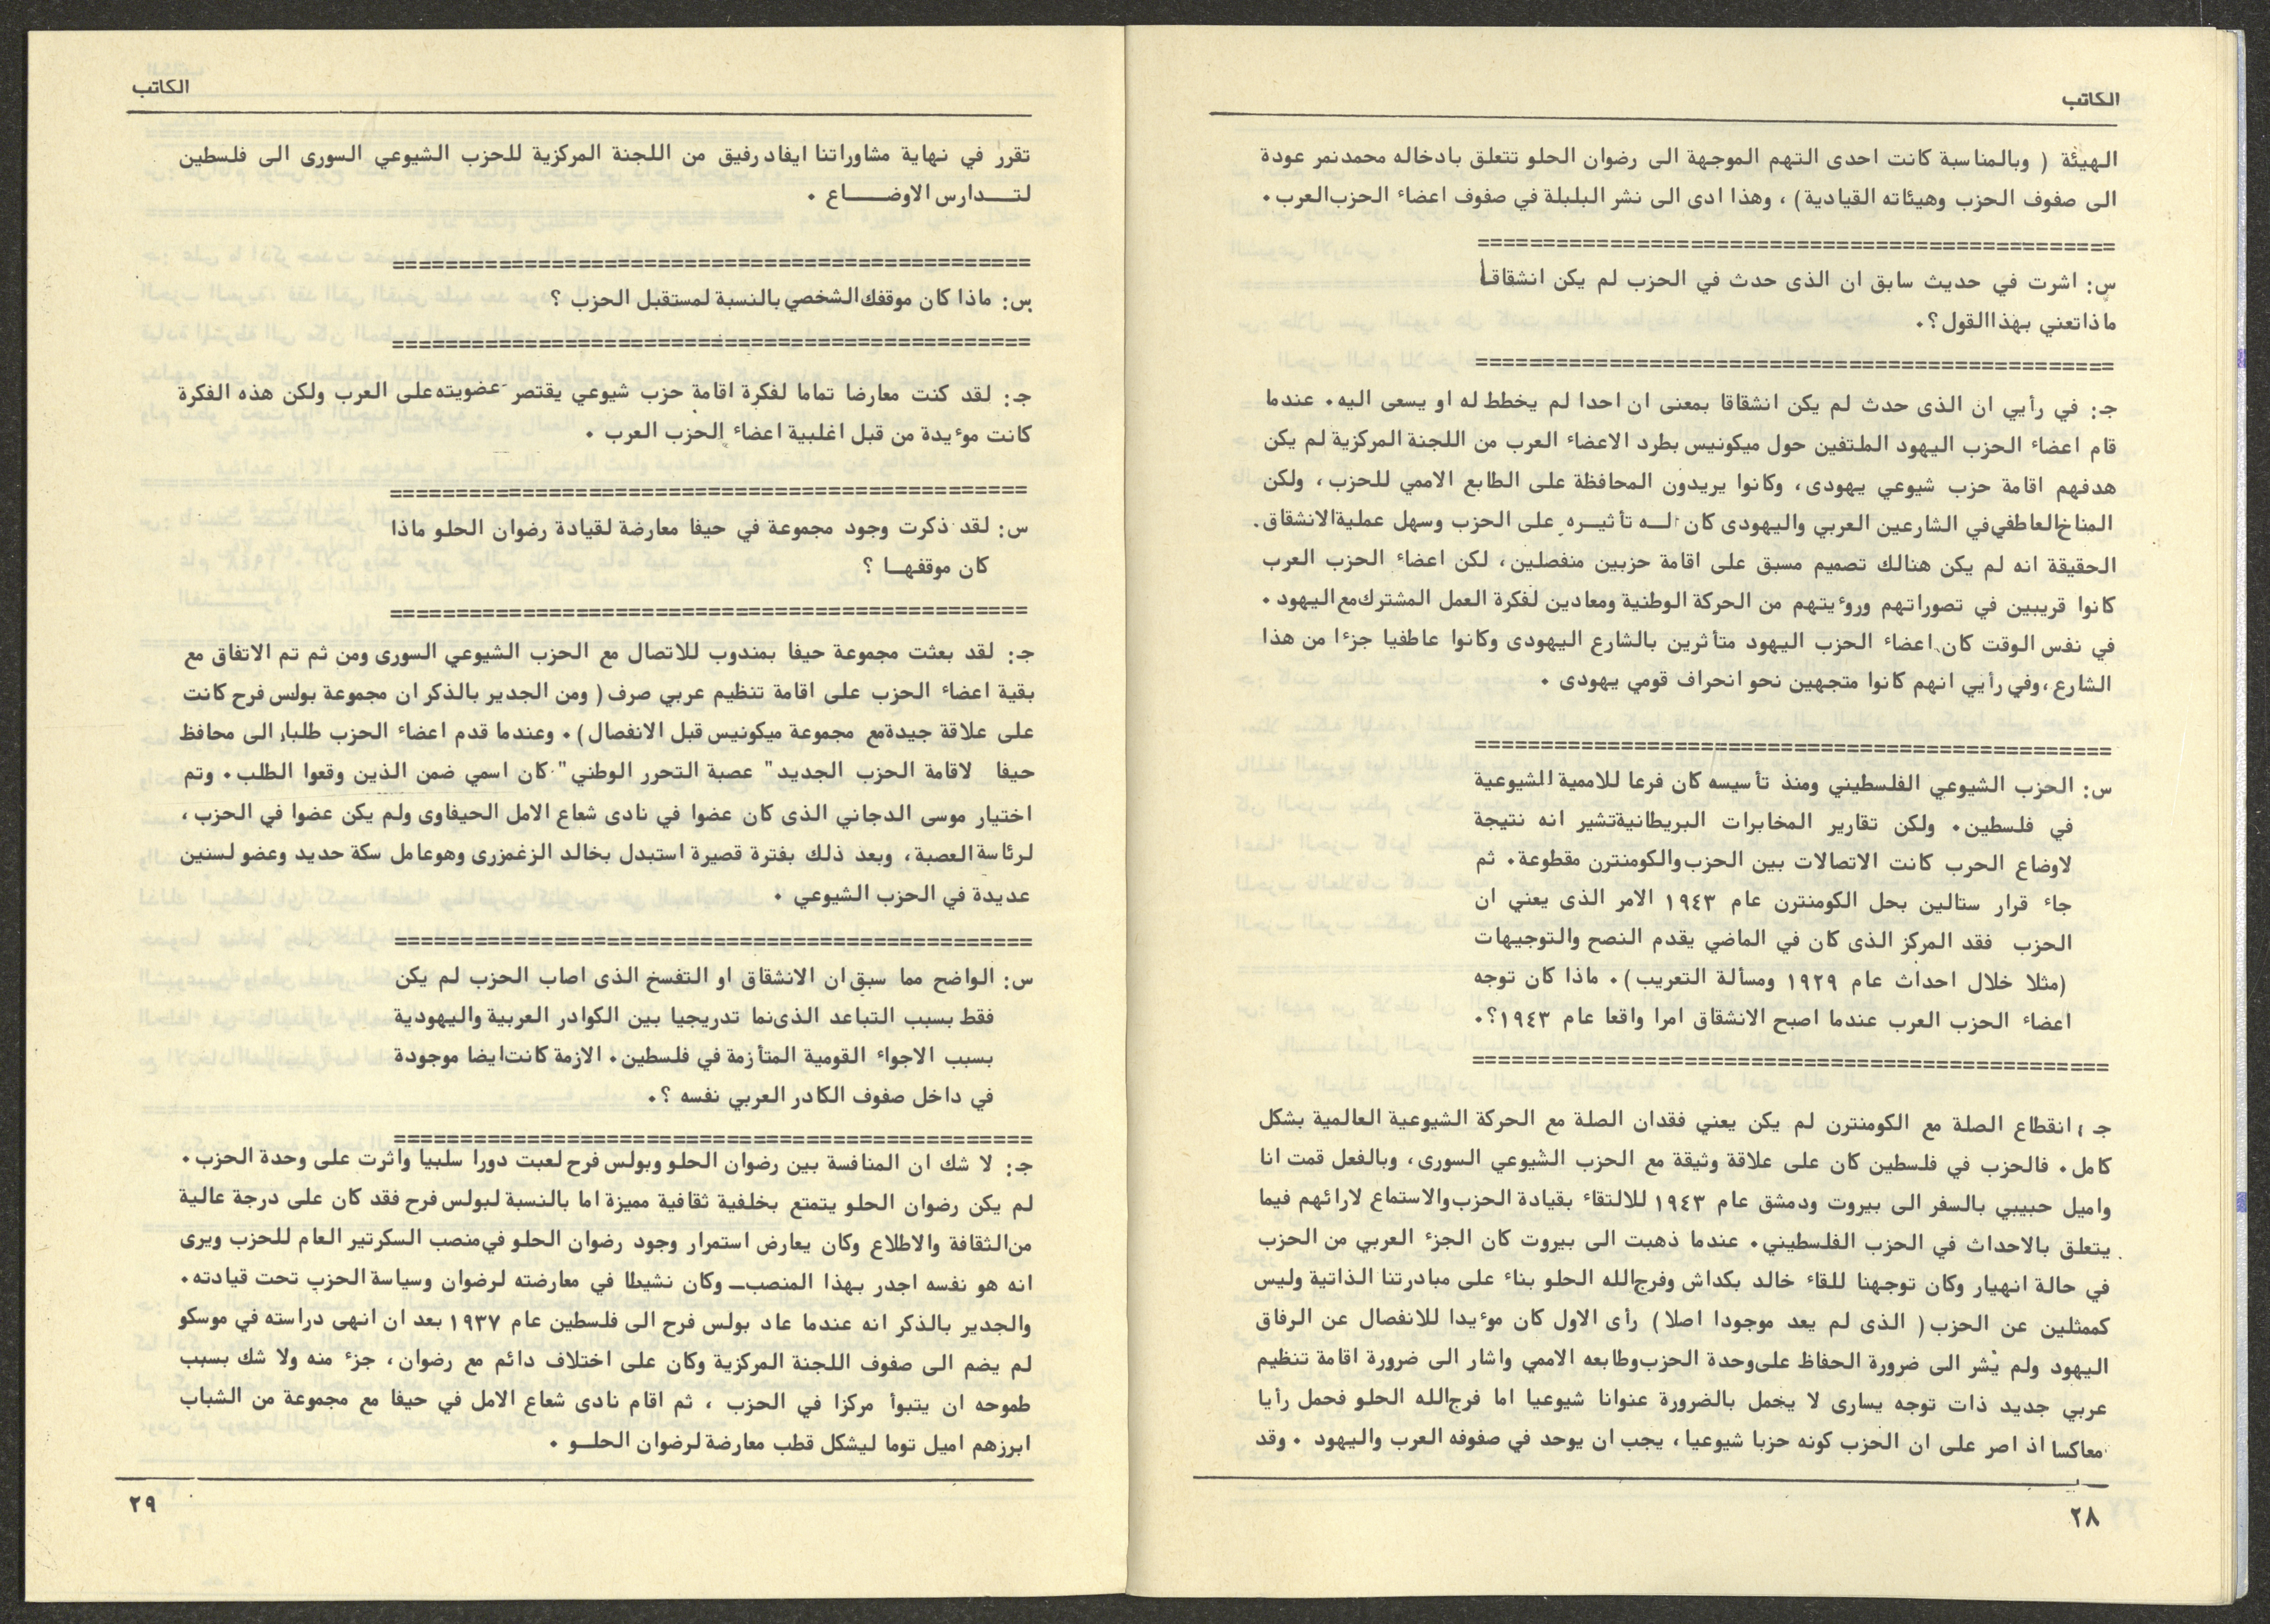 الكاتب
الهيئة ( وبالمناسبة كانت احدى التهم الموجهة الى رضوان الحلو تتعلق بادخاله محمد نمر عودة
الى صفوف الحزب وهيئاته القيادية) ، وهذا ادى الى نشر البلبلة في صفوف اعضاء الحزب العرب .
================================================
س : اشرت في حديث سابق ان الذى حدث في الحزب لم يكن انشقاقا
ماذا تعني بهذا القول ؟ .
================================================
جـ : في رأيي ان الذى حدث لم يكن انشقاقا بمعنى ان احدا لم يخطط له او يسعى اليه . عندما
قام اعضاء الحزب اليهود الملتفين حول ميكونيس بطرد الاعضاء العرب من اللجنة المركزية لم يكن
هدفهم اقامة حزب شيوعي يهودى ، وكانوا يريدون المحافظة على الطابع الاممي للحزب ، ولكن
المناخ العاطفي في الشارعين العربي واليهودى كان لـــه تأثيــره على الحزب وسهل عملية الانشقاق .
الحقيقة انه لم يكن هنالك تصميم مسبق على اقامة حزبين منفصلين ، لكن اعضاء الحزب العرب
كانوا قريبين في تصوراتهم وروءيتهم من الحركة الوطنية ومعادين لفكرة العمل المشترك مع اليهود .
في نفس الوقت كان اعضاء الحزب اليهود متأثرين بالشارع اليهودى وكانوا عاطفيا جزءا من هذا
الشارع ، وفي رأيي انهم كانوا متجهين نحو انحراف قومي يهودى .
================================================
س : الحزب الشيوعي الفلسطيني ومنذ تأسيسه كان فرعا للاممية الشيوعية
في فلسطين . ولكن تقارير المخابرات البريطانية تشير انه نتيجة
لاوضاع الحرب كانت الاتصالات بين الحزب والكومنترن مقطوعة . ثم
جاء قرار ستالين بحل الكومنترن عام ١٩٤٣ الامر الذى يعني ان
الحزب فقد المركز الذى كان في الماضي يقدم النصح والتوجيهات
(مثلا خلال احداث عام ١٩٢٩ ومسألة التعريب) . ماذا كان توجه
اعضاء الحزب العرب عندما اصبح الانشقاق امرا واقعا عام ١٩٤٣ ؟ .
================================================
جـ : انقطاع الصلة مع الكومنترن لم يكن يعني فقدان الصلة مع الحركة الشيوعية العالمية بشكل
كامل . فالحزب في فلسطين كان على علاقة وثيقة مع الحزب الشيوعي السورى ، وبالفعل قمت انا
واميل حبيبي بالسفر الى بيروت ودمشق عام ١٩٤٣ للالتقاء بقيادة الحزب والاستماع لارائهم فيما
يتعلق بالاحداث في الحزب الفلسطيني . عندما ذهبت الى بيروت كان الجزء العربي من الحزب
في حالة انهيار وكان توجهنا للقاء خالد بكداش وفرج الله الحلو بناء على مبادرتنا الذاتية وليس
كممثلين عن الحزب ( الذى لم يعد موجودا اصلا ) رأى الاول كان موءيدا للانفصال عن الرفاق
اليهود ولم يشر الى ضرورة الحفاظ على وحدة الحزب وطابعه الاممي واشار الى ضرورة اقامة تنظيم
عربي جديد ذات توجه يسارى لا يحمل بالضرورة عنوانا شيوعيا اما فرج الله الحلو فحمل رأيا
معاكسا اذ اصر على ان الحزب كونه حزبا شيوعيا ، يجب ان يوحد في صفوفه العرب واليهود . وقد
٢٨
الكاتب
تقرر في نهاية مشاوراتنا ايفاد رفيق من اللجنة المركزية للحزب الشيوعي السورى الى فلسطين
لتـــدارس الاوضـــاع .
================================================
س : ماذا كان موقفك الشخصي بالنسبة لمستقبل الحزب ؟
================================================
جـ : لقد كنت معارضا تماما لفكرة اقامة حزب شيوعي يقتصر عضويته على العرب ولكن هذه الفكرة
كانت موءيدة من قبل اغلبية اعضاء الحزب العرب .
================================================
س : لقد ذكرت وجود مجموعة في حيفا معارضة لقيادة رضوان الحلو ماذا
كان موقفهــا ؟
================================================
جـ : لقد بعثت مجموعة حيفا بمندوب للاتصال مع الحزب الشيوعي السورى ومن ثم تم الاتفاق مع
بقية اعضاء الحزب على اقامة تنظيم عربي صرف ( ومن الجدير بالذكر ان مجموعة بولس فرح كانت
على علاقة جيدة مع مجموعة ميكونيس قبل الانفصال ) . وعندما قدم اعضاء الحزب طلبا الى محافظ
حيفا لاقامة الحزب الجديد " عصبة التحرر الوطني " كان اسمي ضمن الذين وقعوا الطلب . وتم
اختيار موسى الدجاني الذى كان عضوا في نادى شعاع الامل الحيفاوى ولم يكن عضوا في الحزب ،
لرئاسة العصبة ، وبعد ذلك بفترة قصيرة استبدل بخالد الزغمزرى وهو عامل سكة حديد وعضو لسنين
عديدة في الحزب الشيوعي .
================================================
س : الواضح مما سبق ان الانشقاق او التفسخ الذى اصاب الحزب لم يكن
فقط بسبب التباعد الذى نما تدريجيا بين الكوادر العربية واليهودية
بسبب الاجواء القومية المتأزمة في فلسطين . الازمة كانت ايضا موجودة
في داخل صفوف الكادر العربي نفسه ؟ .
================================================
جـ : لا شك ان المنافسة بين رضوان الحلو وبولس فرح لعبت دورا سلبيا واثرت على وحدة الحزب .
لم يكن رضوان الحلو يتمتع بخلفية ثقافية مميزة اما بالنسبة لبولس فرح فقد كان على درجة عالية
من الثقافة والاطلاع وكان يعارض استمرار وجود رضوان الحلو في منصب السكرتير العام للحزب ويرى
انه هو نفسه اجدر بهذا المنصب ــ وكان نشيطا في معارضته لرضوان وسياسة الحزب تحت قيادته .
والجدير بالذكر انه عندما عاد بولس فرح الى فلسطين عام ١٩٣٧ بعد ان انهى دراسته في موسكو
لم يضم الى صفوف اللجنة المركزية وكان على اختلاف دائم مع رضوان ، جزء منه ولا شك بسبب
طموحه ان يتبوأ مركزا في الحزب ، ثم اقام نادى شعاع الامل في حيفا مع مجموعة من الشباب
ابرزهم اميل توما ليشكل قطب معارضة لرضوان الحلــو .
٢٩